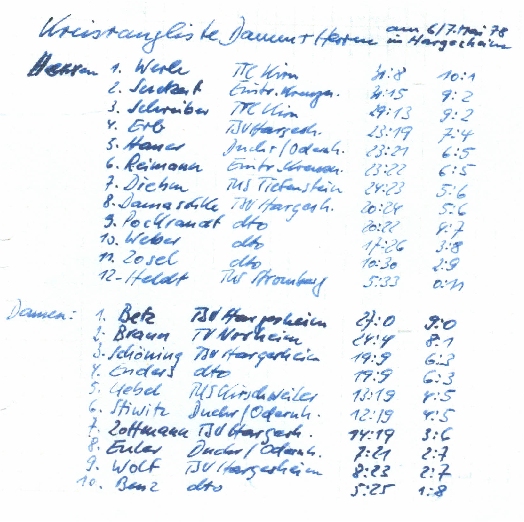 Kreisrangliste Damen + Herren am 6/7. Mai 78
in Hargesheim
Herren 1. Werle TTC Kirn 31:8 10:1
2. Senkert Eintr. Kreuzn. 31:15 9:2
3. Schreiber TTC Kirn 29:13 9:2
4. Erb TSV Hargesh. 23:19 7:4
5. Hauer Duchr/Odernh. 23:21 6:5
6. Reimann Eintr. Kreuzn. 23:22 6:5
7. Diehm TuS Tiefenstein 24:23 5:6
8. Damaschke TSV Hargesh. 20:24 5:6
9. Pockrandt dto 20:22 4:7
10. Weber dto 17:26 3:8
11. Zosel dto 10:30 2:9
12. Heldt TuS Stromberg 5:33 0:11
Damen: 1. Betz TSV Hargesheim 27:0 9:0
2. Braun TV Norheim 24:4 8:1
3. Schöning TSV Hargesheim 19:9 6:3
4. Enders dto 19:9 6:3
5. Hebel TuS Kirschweiler 13:19 4:5
6. Stiwitz Duchr/Odernh. 12:19 4:5
7. Zottmann TSV Hargesh. 14:19 3:6
8. Euler Duchr/Odernh. 7:21 2:7
9. Wolf TSV Hargesheim 8:23 2:7
10. Benz dto 5:25 1:8